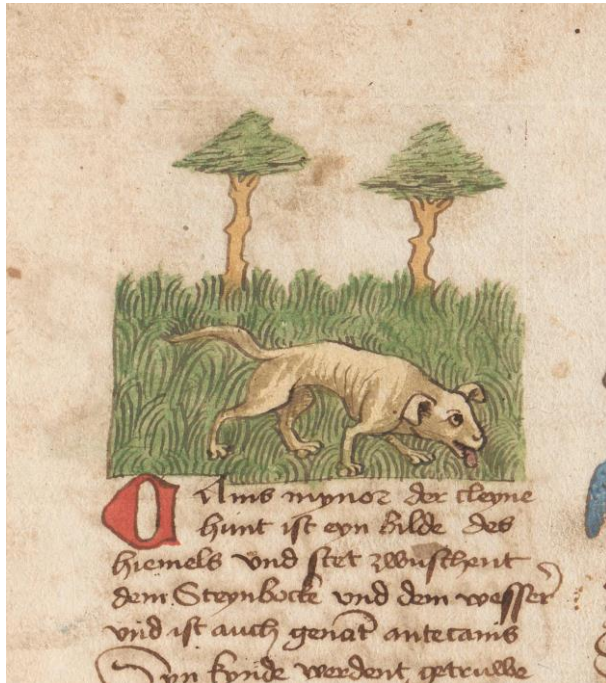 Canis mynor der cleyne
hunt ist eyn bilde des
hiemels vnd stet zwuschent
dem Steynbocke vnd dem wesser
vnd ist auch genāt antecanis
Syn kynde werdent getruwe